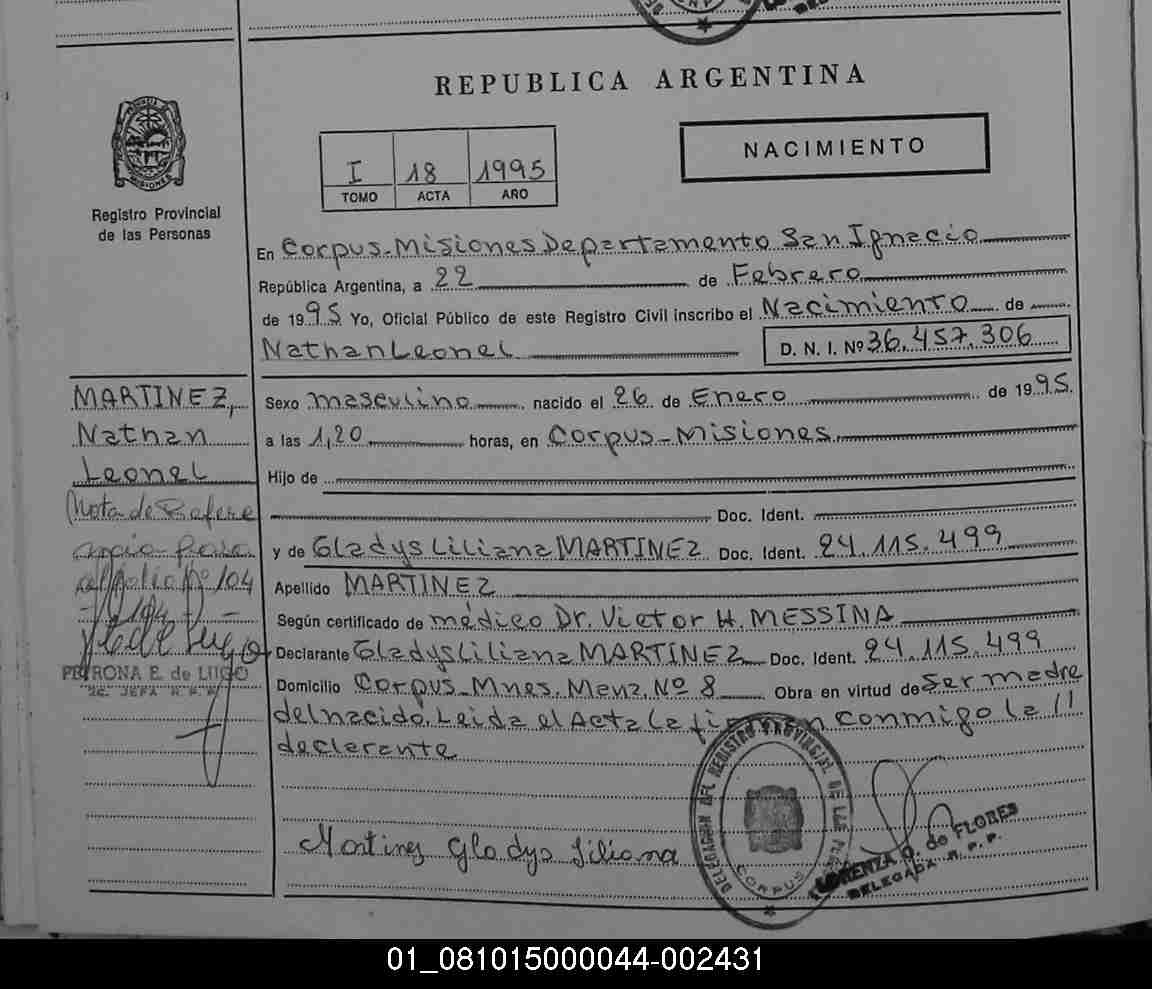 REPUBLICA ARGENTINA
PROVINCIA DE MISIONES
Registro Provincial
de las Personas
I 18 1995
TOMO ACTA AÑO
NACIMIENTO
En Corpus-Misiones Departamento San Ignacio
República Argentina, a 22 de Febrero
de 1995 Yo, Oficial Público de este Registro Civil inscribo el Nacimiento de
Nathan Leonel D. N. I. Nº 36.457.306
MARTINEZ,
Nathan
Leonel
Nota de Refere
ncia pasa
al folio Nº 104
PETRONA E. de LUGO
Sexo masculino nacido el 26 de Enero de 1995.
a las 1,20 horas, en Corpus-Misiones
Hijo de
Doc. Ident.
y de Gladys Liliana MARTINEZ Doc. Ident. 24.115.499
Apellido MARTINEZ
Según certificado de médico Dr. Victor H. MESSINA
Declarante Gladys Liliana MARTINEZ Doc. Ident. 24.115.499
Domicilio Corpus-Mnes. Manz. Nº 8 Obra en virtud de ser madre
del nacido. Leida el Acta la firman conmigo la //
declarante
Martinez Gladys Liliana
DELEGACION DEL REGISTRO PROVINCIAL DE LAS
CORPUS
LORENZA G. de FLORES
DELEGADA R. P. P.
01_081015000044-002431